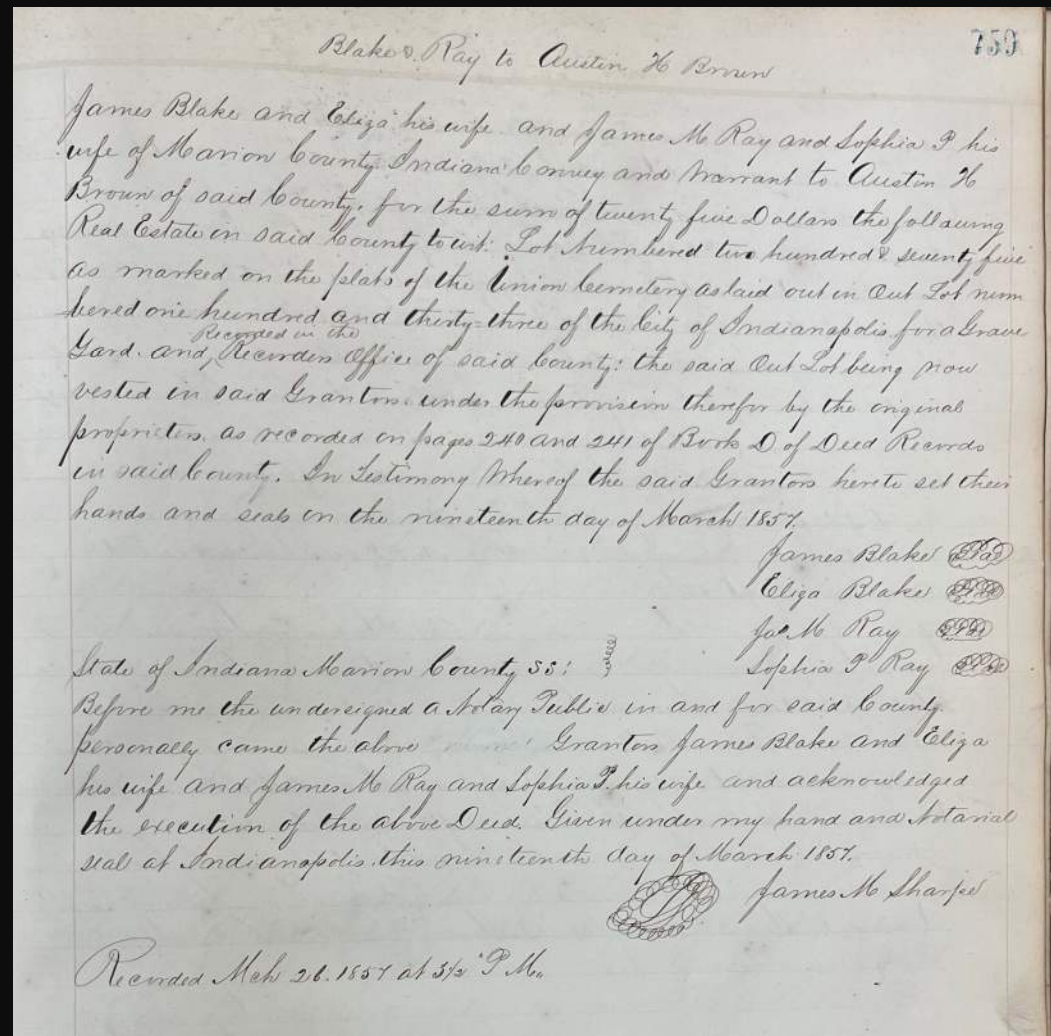 759
Blake & Ray to Austin H Brown
James Blake and Eliza his wife and James M Ray and Sophia P his
wife of Marion County Indiana Convey and Warrant to Austin H
Brown of said County, for the sum of twenty five Dollars the following
Real Estate in said County to wit: Lot Numbered two hundred & seventy five
as marked on the plats of the Union Cemetery as laid out in Out Lot num
bered one hundred and thirty-three of the City of Indianapolis for a Grave
Recorded in the
Yard. and ^ Recorders Office of said County: the said Out Lot being now
vested in said Grantors under the provision therefor by the original
proprietors. as recorded on pages 240 and 241 of Book D of Deed Records
in said County. In Testimony Whereof the said Grantors hereto set their
hands and seals on the nineteenth day of March 1857.
James Blake Seal
Eliza Blake Seal
Jas M Ray Seal
State of Indiana Marion County SS:
Sophia P Ray Seal
Before me the undersigned a Notary Public in and for said County.
personally came the above Grantors James Blake and Eliza
his wife and James M Ray and Sophia P. his wife and acknowledged
the execution of the above Deed. Given under my hand and Notarial
seal at Indianapolis this nineteenth day of March 1857.
James M Sharpe
Recorded Mch 26. 1857 at 3½ P M.